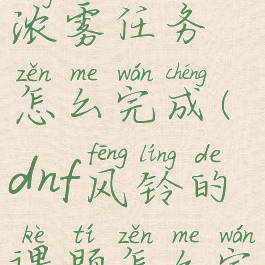 浓雾任务
zěn me wán chéng
怎么完成(
fēng líng de
dnf风铃的
kè tí zěn me wán
课题怎么完